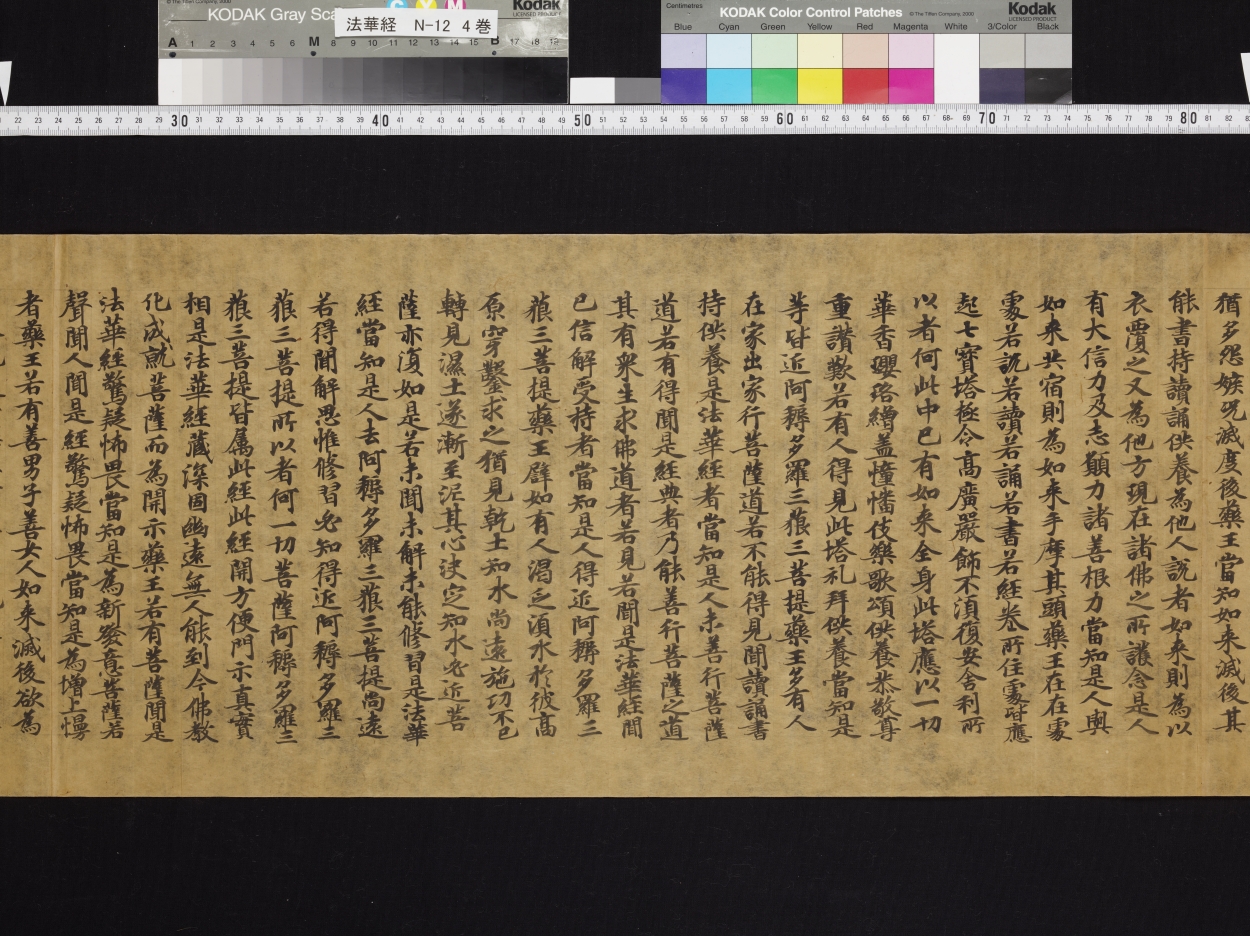 KODAK Gray Sca
© The Tiffen Company, 2000
C Y M
Kodak
LICENSED PRODUCT
法華経 N-12 4巻
A 1 2 3 4 5 6 M 8 9 10 11 12 13 14 15 B 17 18 19
Centimetres
KODAK Color Control Patches
© The Tiffen Company, 2000
Kodak
LICENSED PRODUCT
Blue Cyan Green Yellow Red Magenta White 3/Color Black
22 23 24 25 26 27 28 29 30 31 32 33 34 35 36 37 38 39 40 41 42 43 44 45 46 47 48 49 50 51 52 53 54 55 56 57 58 59 60 61 62 63 64 65 66 67 68 69 70 71 72 73 74 75 76 77 78 79 80 81 82
猶多怨嫉況滅度後藥王當知如来滅後其
能書持讀誦供養為他人說者如来則為以
衣覆之又為他方現在諸佛之所護念是人
有大信力及志願力諸善根力當知是人與
如来共宿則為如来手摩其頭藥王在在處
處若說若讀若誦若書若經卷所住處皆應
起七寶塔極令高廣嚴飾不湏復安舍利所
以者何此中已有如来全身此塔應以一切
華香瓔珞繒盖幢幡伎樂歌頌供養恭敬尊
重讃歎若有人得見此塔礼拜供養當知是
等皆近阿耨多羅三藐三菩提藥王多有人
在家出家行菩薩道若不能得見聞讀誦書
持供養是法華經者當知是人未善行菩薩
道若有得聞是經典者乃能善行菩薩之道
其有衆生求佛道者若見若聞是法華經聞
已信解受持者當知是人得近阿耨多羅三
藐三菩提藥王辟如有人渴乏湏水於彼高
原穿鑿求之猶見乾土知水尚遠施功不已
轉見濕土遂漸至泥其心决定知水必近菩
薩亦復如是若未聞未解未能修習是法華
經當知是人去阿耨多羅三藐三菩提尚遠
若得聞解思惟修習必知得近阿耨多羅三
藐三菩提所以者何一切菩薩阿耨多羅三
藐三菩提皆属此經此經開方便門示真實
相是法華經藏深固幽遠無人能到今佛教
化成就菩薩而為開示藥王若有菩薩聞是
法華經驚疑怖畏當知是為新發意菩薩若
聲聞人聞是經驚疑怖畏當知是為增上慢
者藥王若有善男子善女人如来滅後欲為